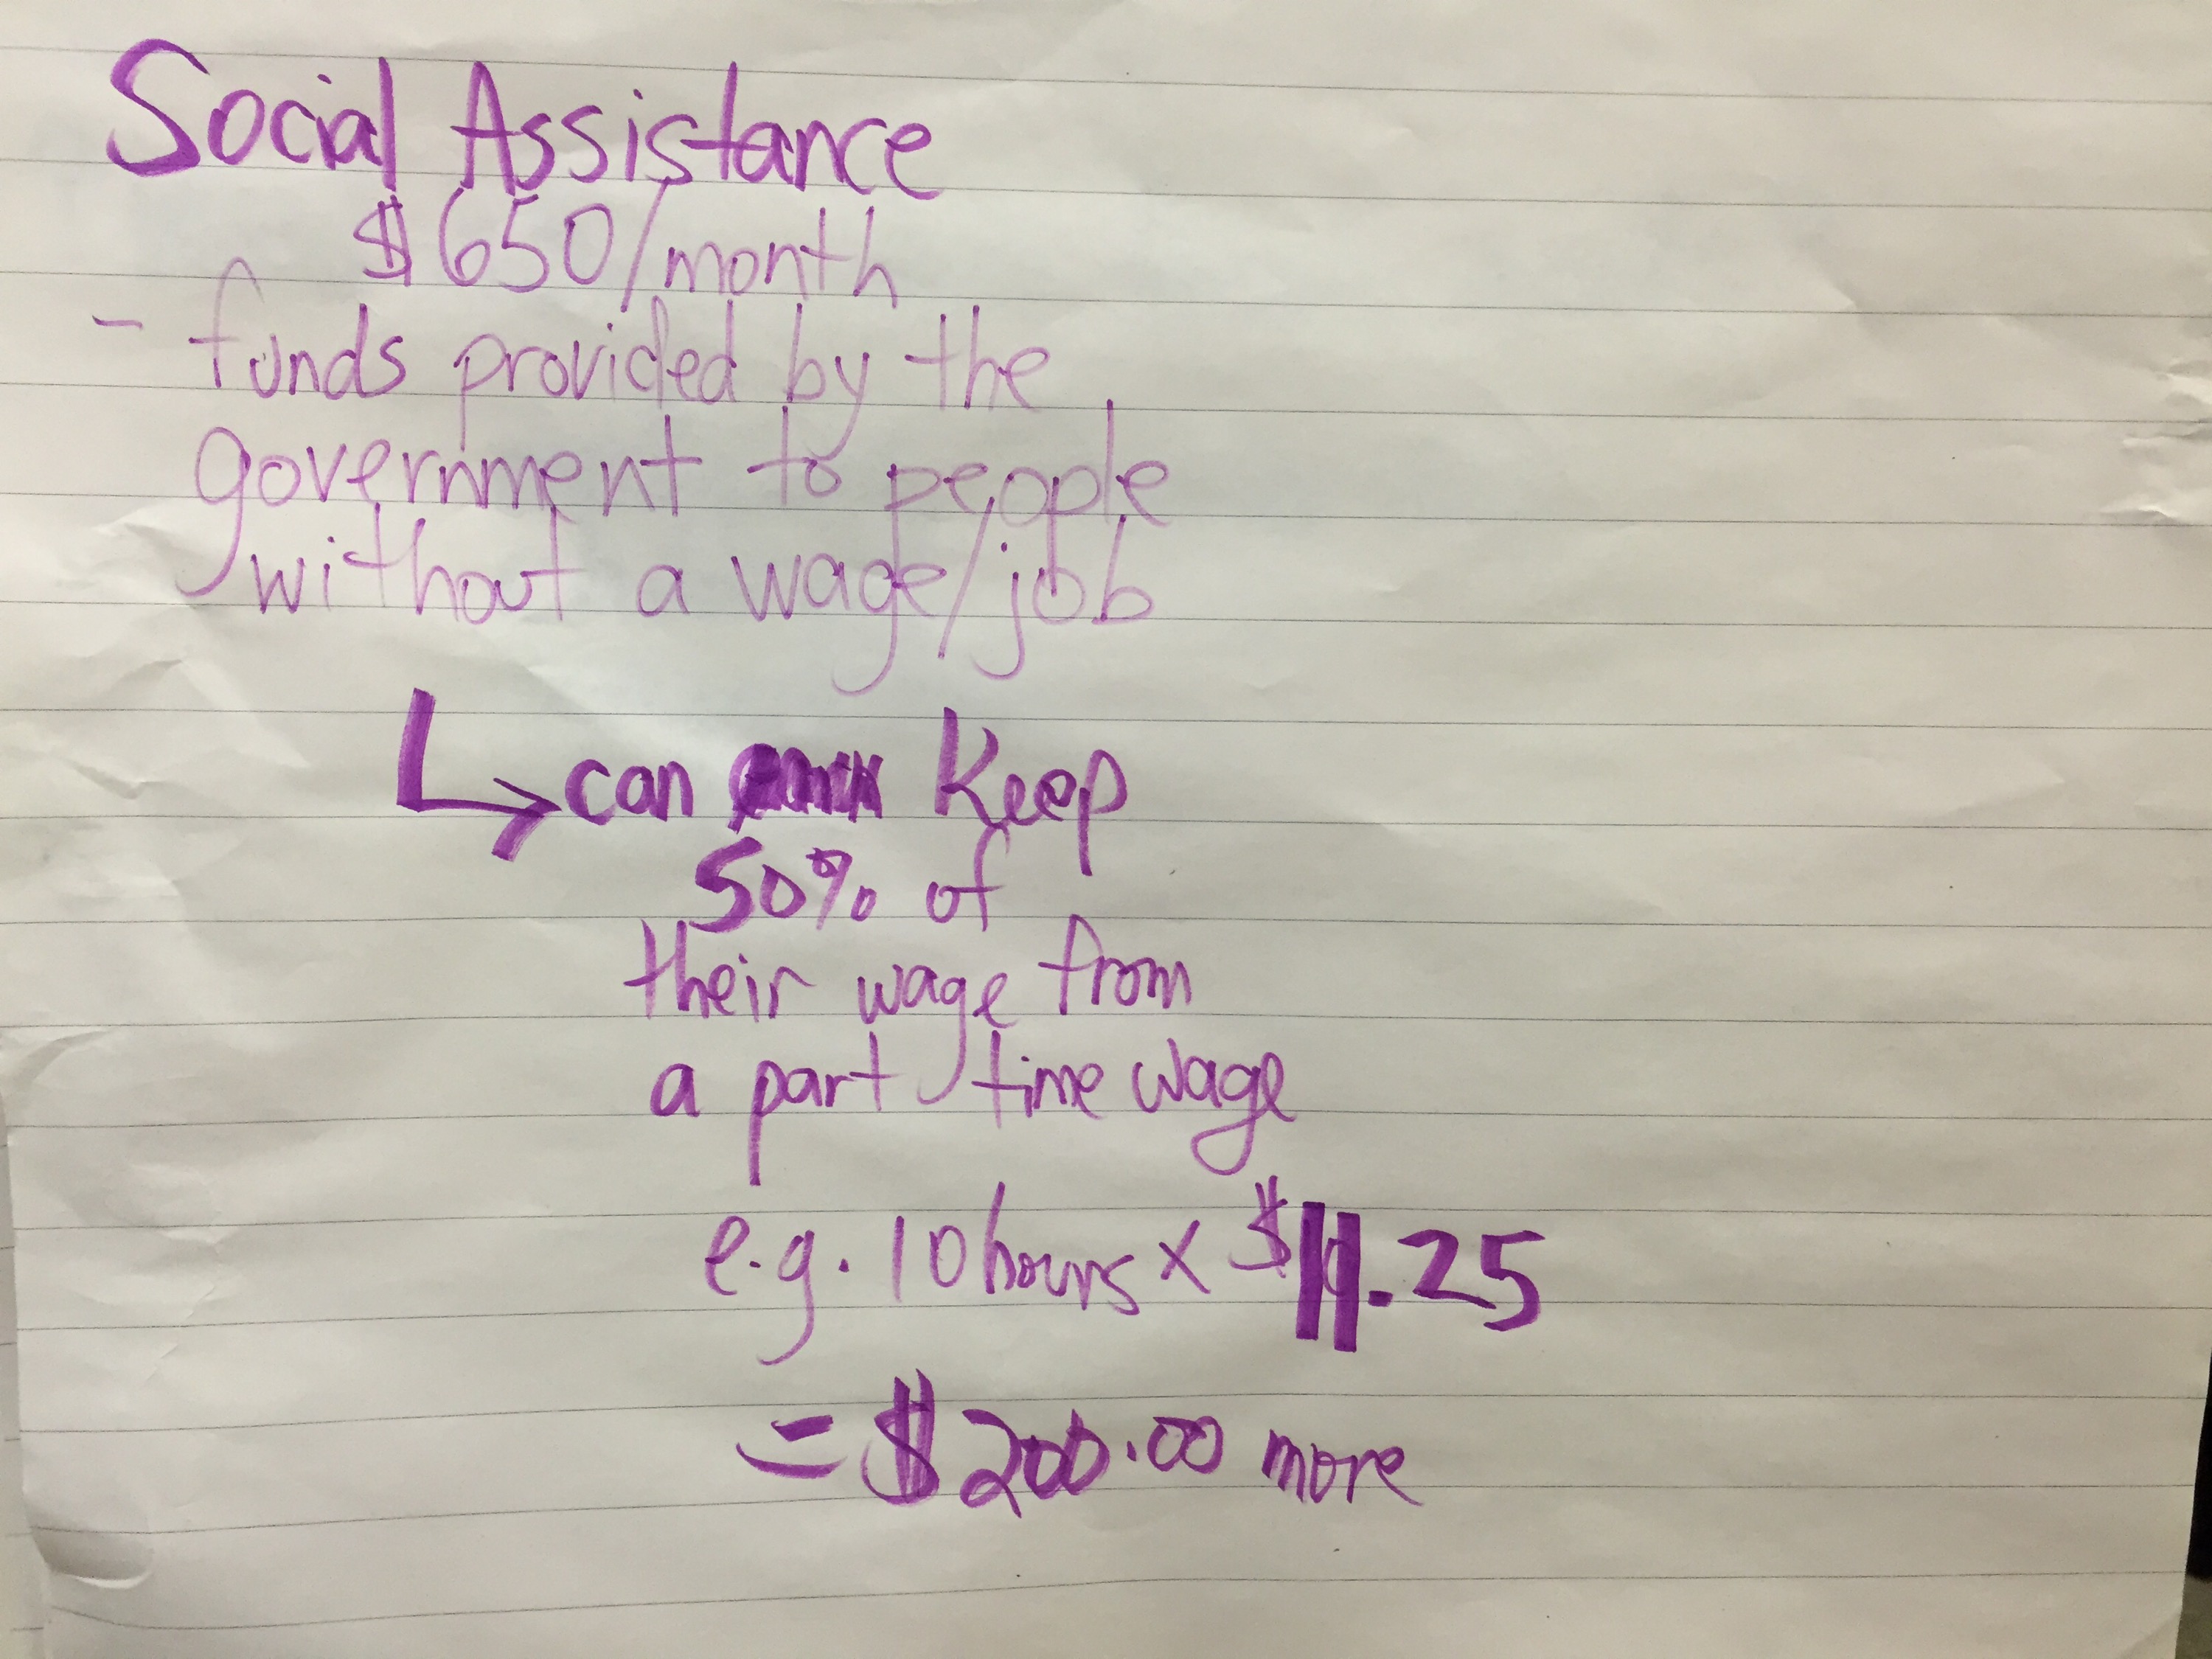 Social Assistance
$650/month
- funds provided by the
government to people
without a wage/job
↳ can keep
50% of
their wage from
a part time wage
e.g. 10 hours x $11.25
= $200.00 more